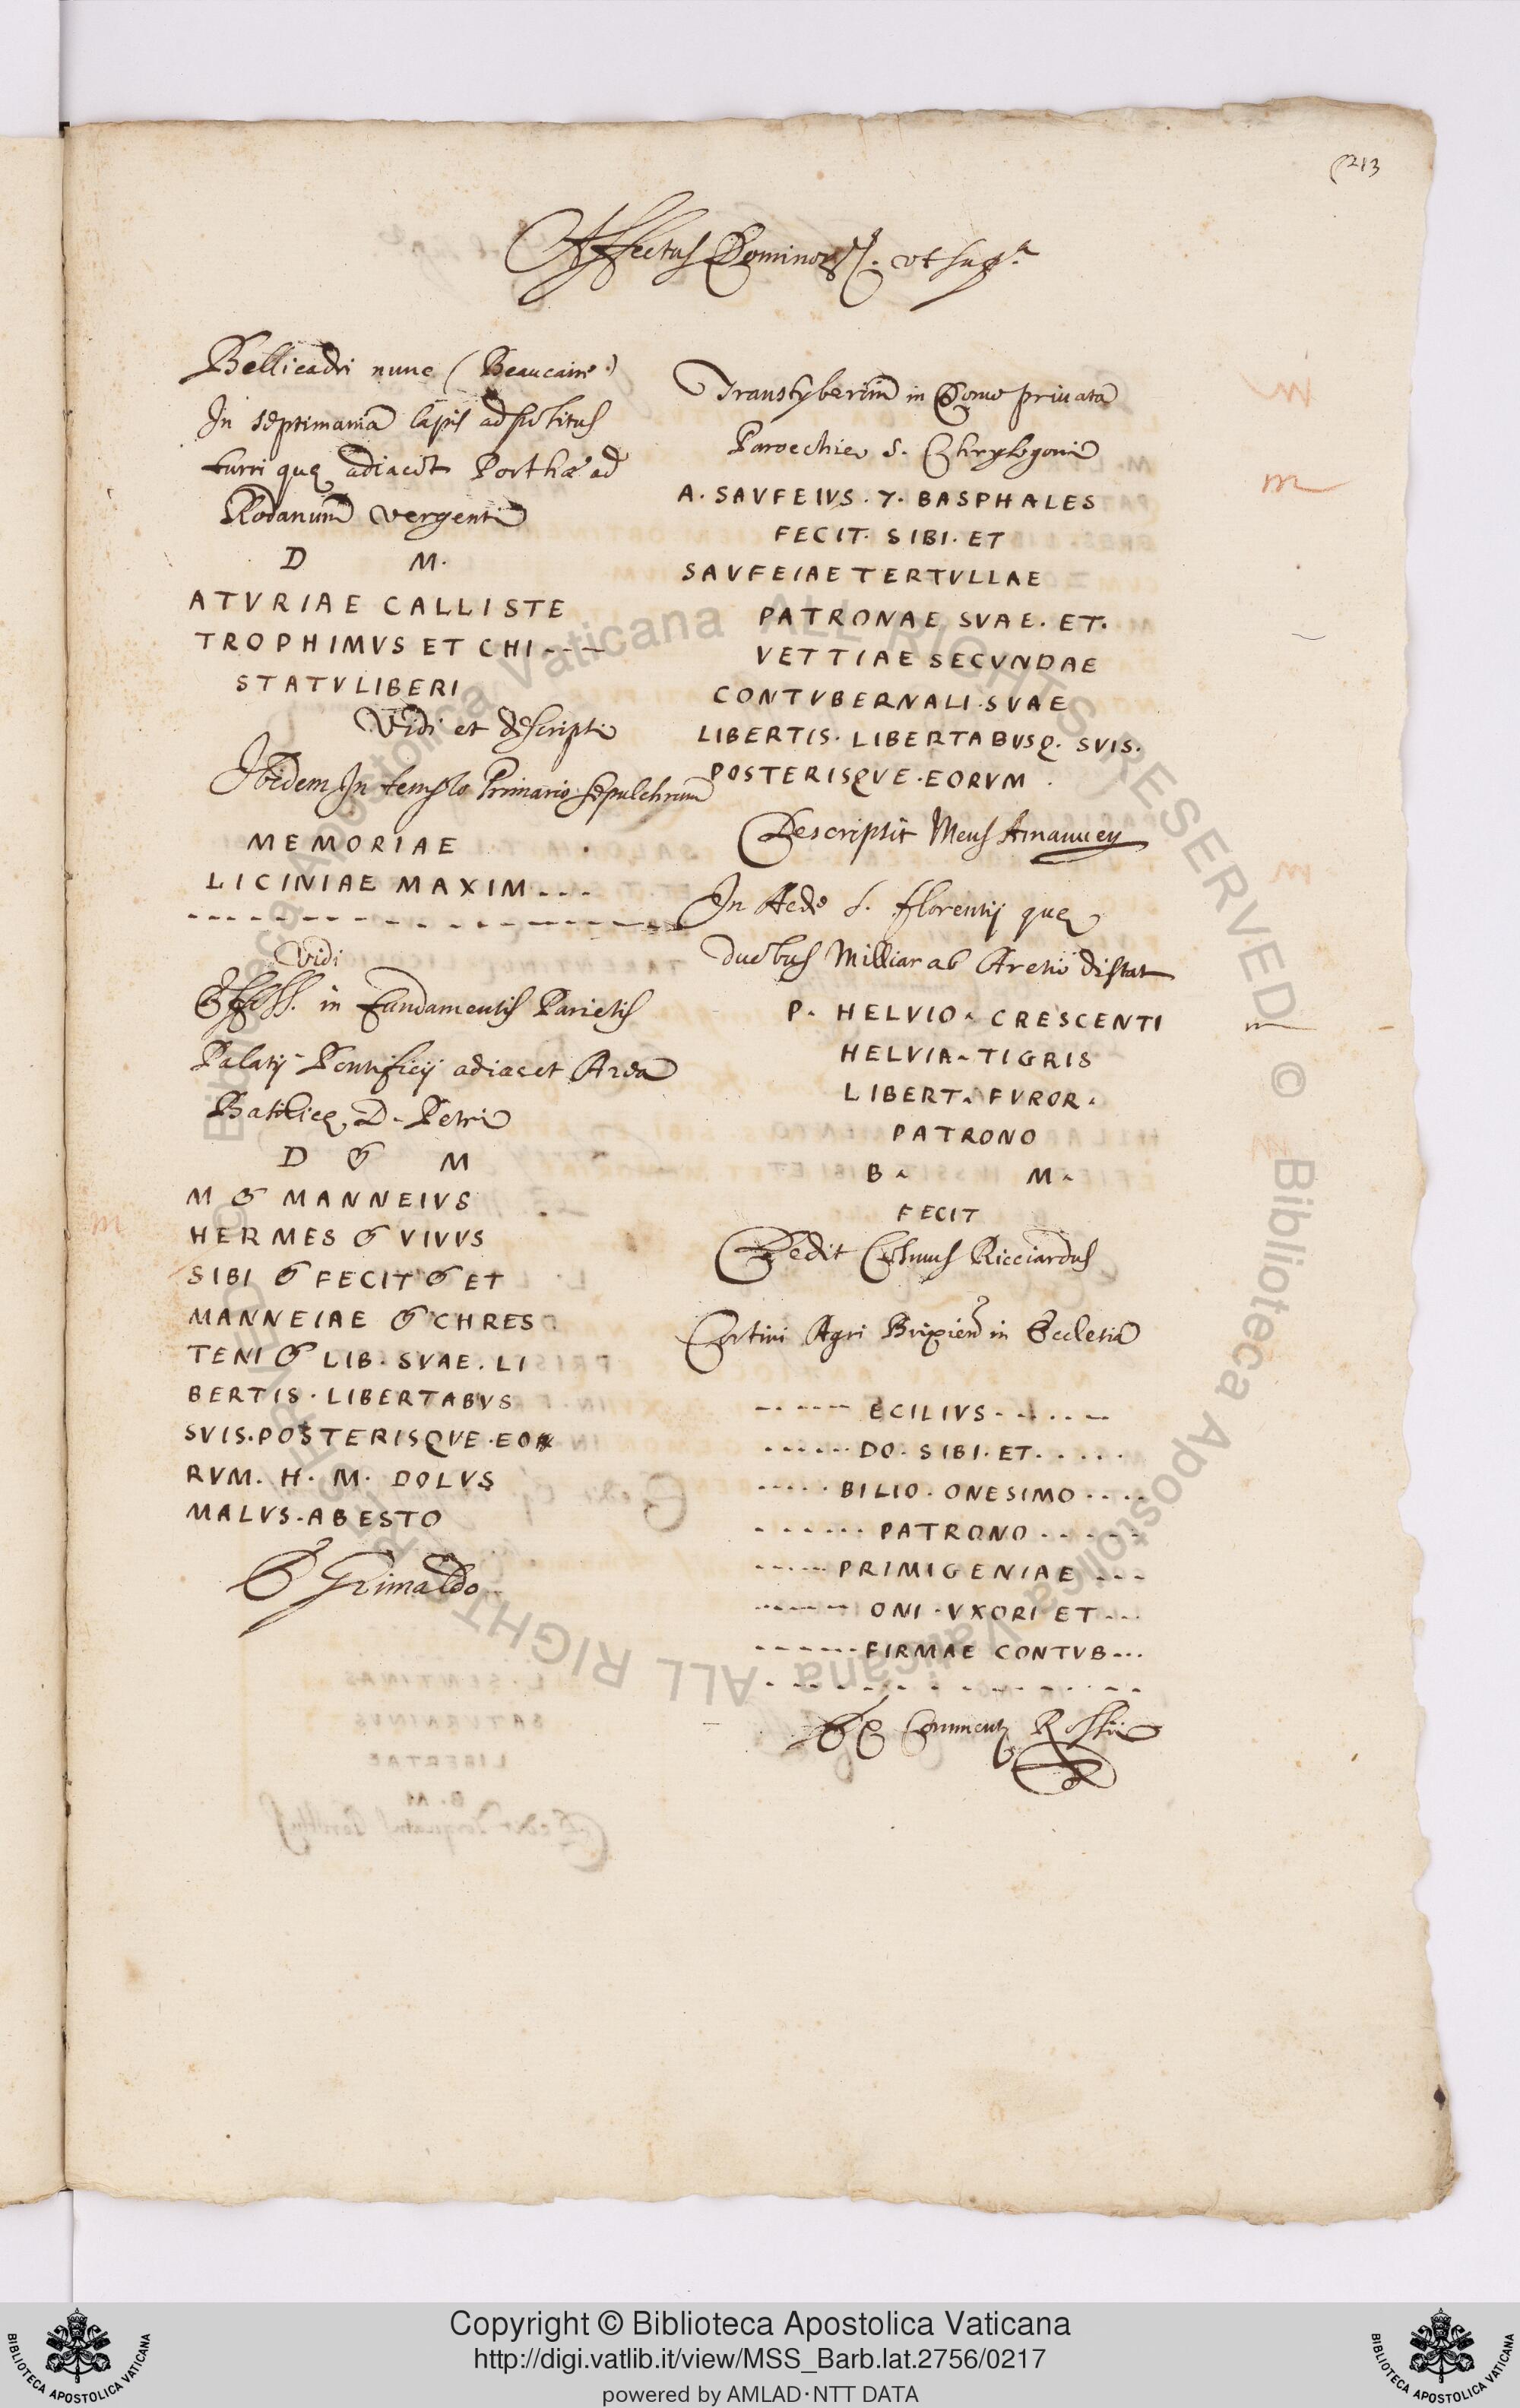 213
Affectus Dominor. ut sup.ª
Bellicadri nunc (Beaucaire.)
In septimania lapis adpositus
turri quę adiacet Porthæ ad
Rodanum vergenti
D M.
ATVRIAE CALLISTE
TROPHIMVS ET CHI---
STATVLIBERI
Vidi et descripsi
Ibidem In templo Primario sepulchrum
MEMORIAE
LICINIAE MAXIM---
Vidi
in Fundamentis Parietis
Palatij Pontificij adiacet Area
Basilicę D. Petri
D M
M MANNEIVS
HERMES VIVVS
SIBI FECIT ET
MANNEIAE CHRES
TENI LIB. SVAE. LI
BERTIS. LIBERTABVS
SVIS. POSTERISQVE. EO
RVM. H. M. DOLVS
MALVS. ABESTO
E Grimaldo
Transtyberim in Domo privata
Paroechie S. Chrysogoni
A. SAVFEIVS. 7. BASPHALES
FECIT. SIBI. ET
SAVFEIAE TERTVLLAE
PATRONAE SVAE. ET.
VETTIAE SECVNDAE
CONTVBERNALI. SVAE
LIBERTIS. LIBERTABVSQ. SVIS.
POSTERISQVE. EORVM
Descripsit Meus Amanuen
In Aede S. florentij quę
duobus Milliar ab Aretio distat
P. HELVIO. CRESCENTI
HELVIA. TIGRIS
LIBERT. FVROR.
PATRONO
B. M.
FECIT
Dedit Cosmus Ricciardus
Cortini Agri Brixien in Ecclesia
------ ECILIVS------
------DO. SIBI. ET.....
-----BILIO. ONESIMO....
------PATRONO------
-----PRIMIGENIAE---
------ONI. VXORI ET---
------FIRMAE CONTVB---
Ex Comment Rossi
Copyright © Biblioteca Apostolica Vaticana
http://digi.vatlib.it/view/MSS_Barb.lat.2756/0217
powered by AMLAD·NTT DATA